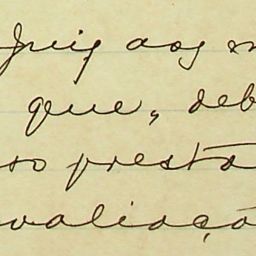 Juiz aos
que, deb
so presta
valiaçã